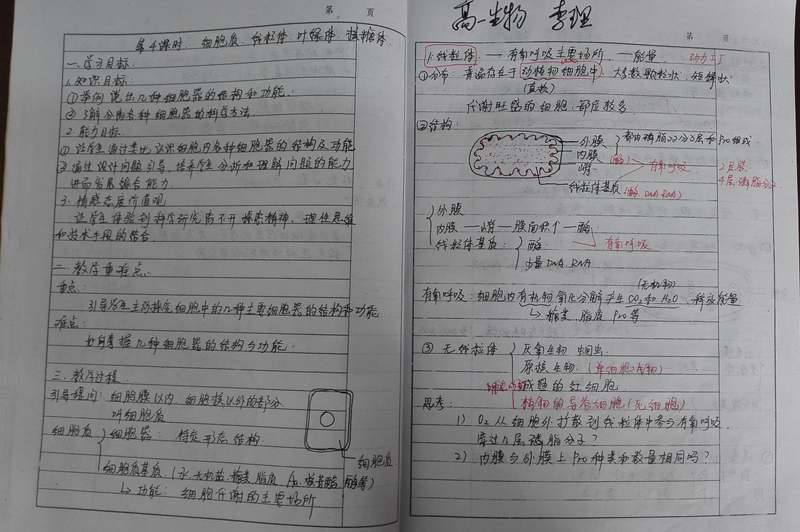 第 页
第4课时 细胞质 线粒体 叶绿体 核糖体
一、学习目标
1.知识目标
①举例说出几种细胞器的结构和功能.
②了解分离各种细胞器的科学方法.
2.能力目标
①让学生通过类比认识细胞内各种细胞器的结构及功能
②通过设计问题引导,培养学生分析和理解问题的能力
进而发展综合能力.
3.情感态度价值观
让学生体验到科学研究离不开探索精神、理性思维
和技术手段的结合
二、教学重难点
重点:
引导学生主动探究细胞中的几种主要细胞器的结构和功能
难点:
如何掌握几种细胞器的结构与功能.
三、教学过程
引导提问:细胞膜以内 细胞核以外的部分
叫细胞质
细胞质
细胞器: 特定形态结构
细胞质
细胞质基质(水、无机盐、糖类、脂质、 核苷酸、酶等)
功能: 细胞代谢的主要场所
高一生物 李理
第 页
1.线粒体 — 有氧呼吸主要场所. — 能量 动力工厂
①分布: 普遍存在于动植物细胞中. 大多数颗粒状、短棒状
(真核)
代谢旺盛的细胞、部位较多.
②结构:
外膜
内膜
嵴
都由磷脂双分子层和Pro组成
(酶)
有氧呼吸
线粒体基质(酶 DNA RNA)
2层膜
4层磷脂分子
外膜
内膜 — 嵴 — 膜面积↑ — 酶
线粒体基质:
酶
少量DNA、RNA
有氧呼吸
(无机物)
有氧呼吸:细胞内有机物氧化分解产生CO2和H2O、释放能量
糖类、脂质、Pro等
③ 无线粒体
厌氧生物 蛔虫
原核生物(单细胞生物)
成熟的红细胞
植物的导管细胞(死细胞)
思考:
1) O2从细胞外扩散到线粒体中参与有氧呼吸,
穿过几层磷脂分子?
2) 内膜与外膜上Pro种类和数量相同吗?